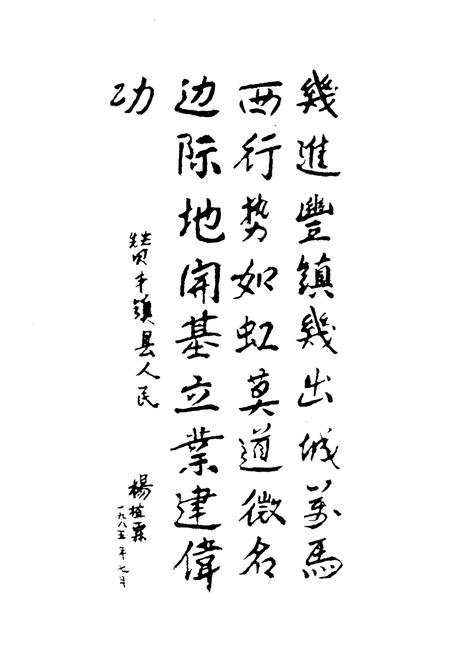 幾進豐鎮幾出城萬馬
西行势如虹莫道微名
边际地開基立業建偉
功
赞丰鎮县人民
楊植霖
一九八五年七月